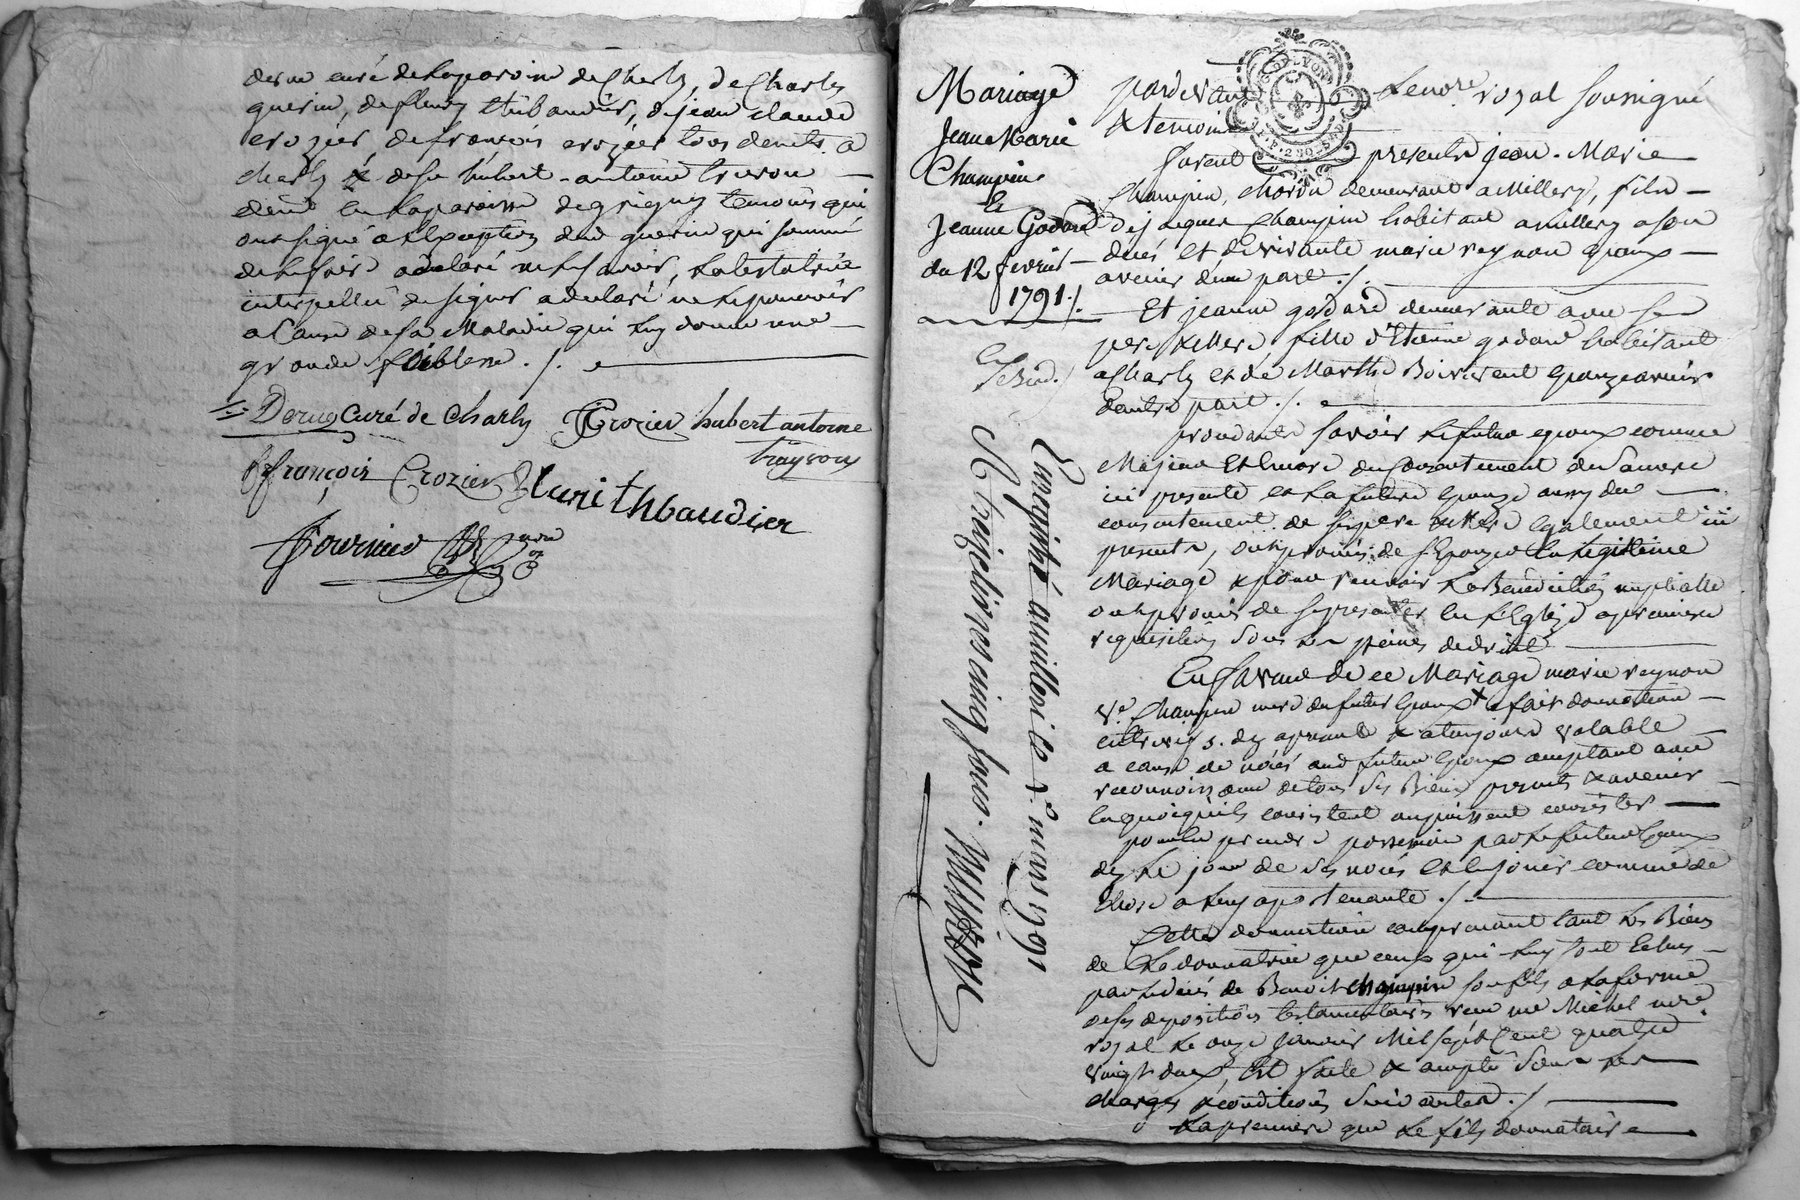 curé de la paroisse de Charly, de Charles
guerin, de fleury thibaudier, de jean claude
crozier, de françois crozier tous demts. a
charly & de sr hubert antoine
demt en la paroisse de grigny temoins qui
ont signé a l'exception dud guerin qui sommé
de le faire a declaré ne le savoir, la testatrice
interpellée de signer a declaré ne le pouvoir
a cause de sa maladie qui luy donne une
grande foiblesse ./.
curé de charly Crozier hubert antoine
françois Crozier fleuri thbaudier
fournier nore
Mariage
Jean Marie
Champin
&
Jeanne Godard
du 12 fevrier
1791./.
Enregistré a millery le 2 mars 1791
R treize livres cinq sous.
pardevant le nore. royal soussigné
& temoins
furent presents jean Marie
Champin, charon demeurant a Millery, fils
de jacques Champin habitant a millery a son
deces et de vivante marie reynon epoux
avenir d'une part ./.
Et jeanne godard demeurante avec ses
pere & mere fille d'Etienne godard habitant
a Charly et de Marthe Boiron epouze avenir
d'autre part ./.
procedants savoir le futur epoux comme
Majeur et encore du consentement de sa mere
ici presente et la future epouze aussy du
consentement de ses pere & mere egalement ici
presents, ont promis de s'epouzer en legitime
Mariage & pour recevoir la Benediction nuptialle
ont promis de se presenter en l'Eglize a premiere
requisition sous les peines de droit
En faveur de ce Mariage marie reynon
ve. Champin mere du futur epoux a fait donnation
entrevifs. des a present & a toujours valable
a cause de nôces aud futur epoux acceptant avec
reconnoissance de tous ses Biens presents & avenir
en quoiqu'ils consistent ou puissent consister
pour en prendre possession par le futur epoux
dez le jour de ses noces et en jouir comme de
chose a luy apartenante ./.
Cette donnation comprenant tant les Biens
de la donnatrice que ceux qui luy sont echus
par le deces de Benoit champin son fils a la forme
de ses dispositions testamentaires recu me Michel nore.
royal le onze janvier Mil sept cent quatre
vingt deux, Est faite & acceptée sous les
charges & conditions suivantes ./.
la premiere que le fils donnataire